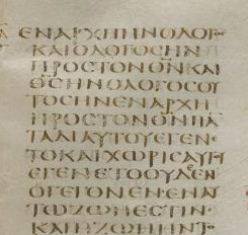 ΕΝΑΡΧΗΗΝΟΛΟΓΟ
ΚΑΙΟΛΟΓΟϹΗΝ
ΠΡΟϹΤΟΝΘ̅Ν̅ΚΑΙ
Θ̅Ϲ̅ΗΝΟΛΟΓΟϹΟΥ
ΤΟϹΗΝΕΝΑΡΧΗ
ΠΡΟϹΤΟΝΘ̅Ν̅ΠΑ
ΤΑΔΙΑΥΤΟΥΕΓΕΝ
ΤΟΚΑΙΧΩΡΙϹΑΥΤ
ΕΓΕΝΕΤΟΟΥΔΕΝ
ΟΓΕΓΟΝΕΝ·ΕΝΑΥ
ΤΩΖΩΗΕϹΤΙΝ·
ΚΑΙΗΖΩΗΗΝΤ